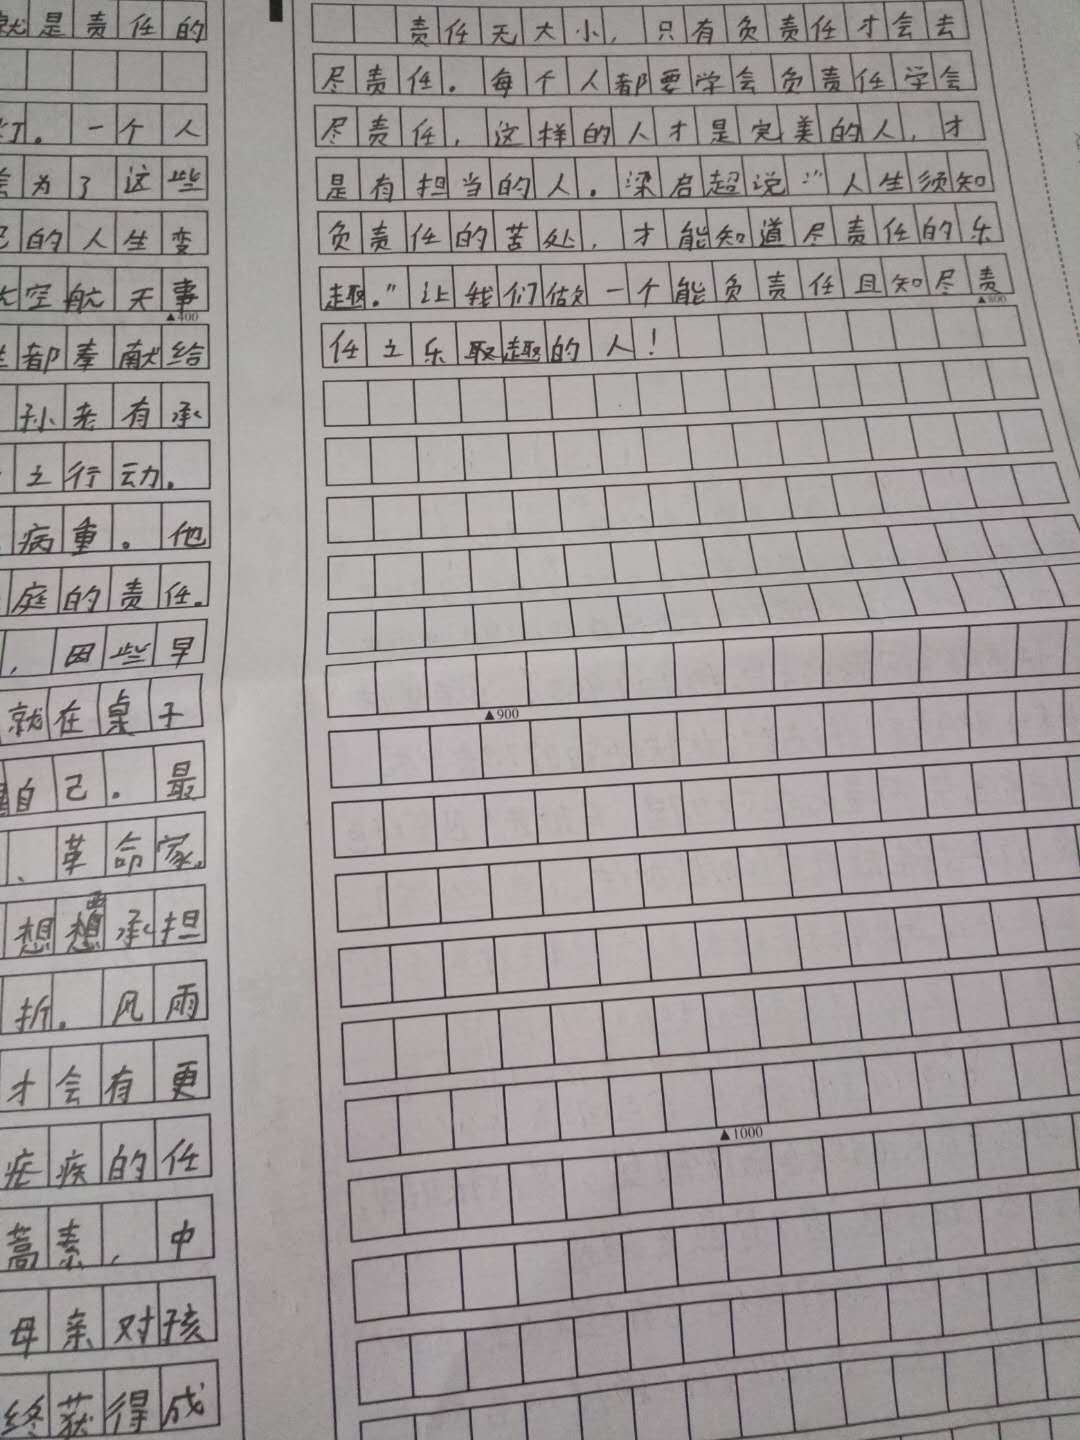 就是责任的
灯。一个人
为了这些
的人生变
太空航天事
▲400
都奉献给
孙老有承
立行动。
病重。他
庭的责任。
，因些早
就在桌子
自己。最
、革命家。
想想承担
折。风雨
才会有更
疟疾的任
蒿素，中
母亲对孩
终获得成
责任无大小，只有负责任才会去
尽责任。每个人都要学会负责任学会
尽责任，这样的人才是完美的人，才
是有担当的人。梁启超说:"人生须知
负责任的苦处，才能知道尽责任的乐
趣。"让我们做一个能负责任且知尽责
▲800
任之乐取趣的人！
▲900
▲1000